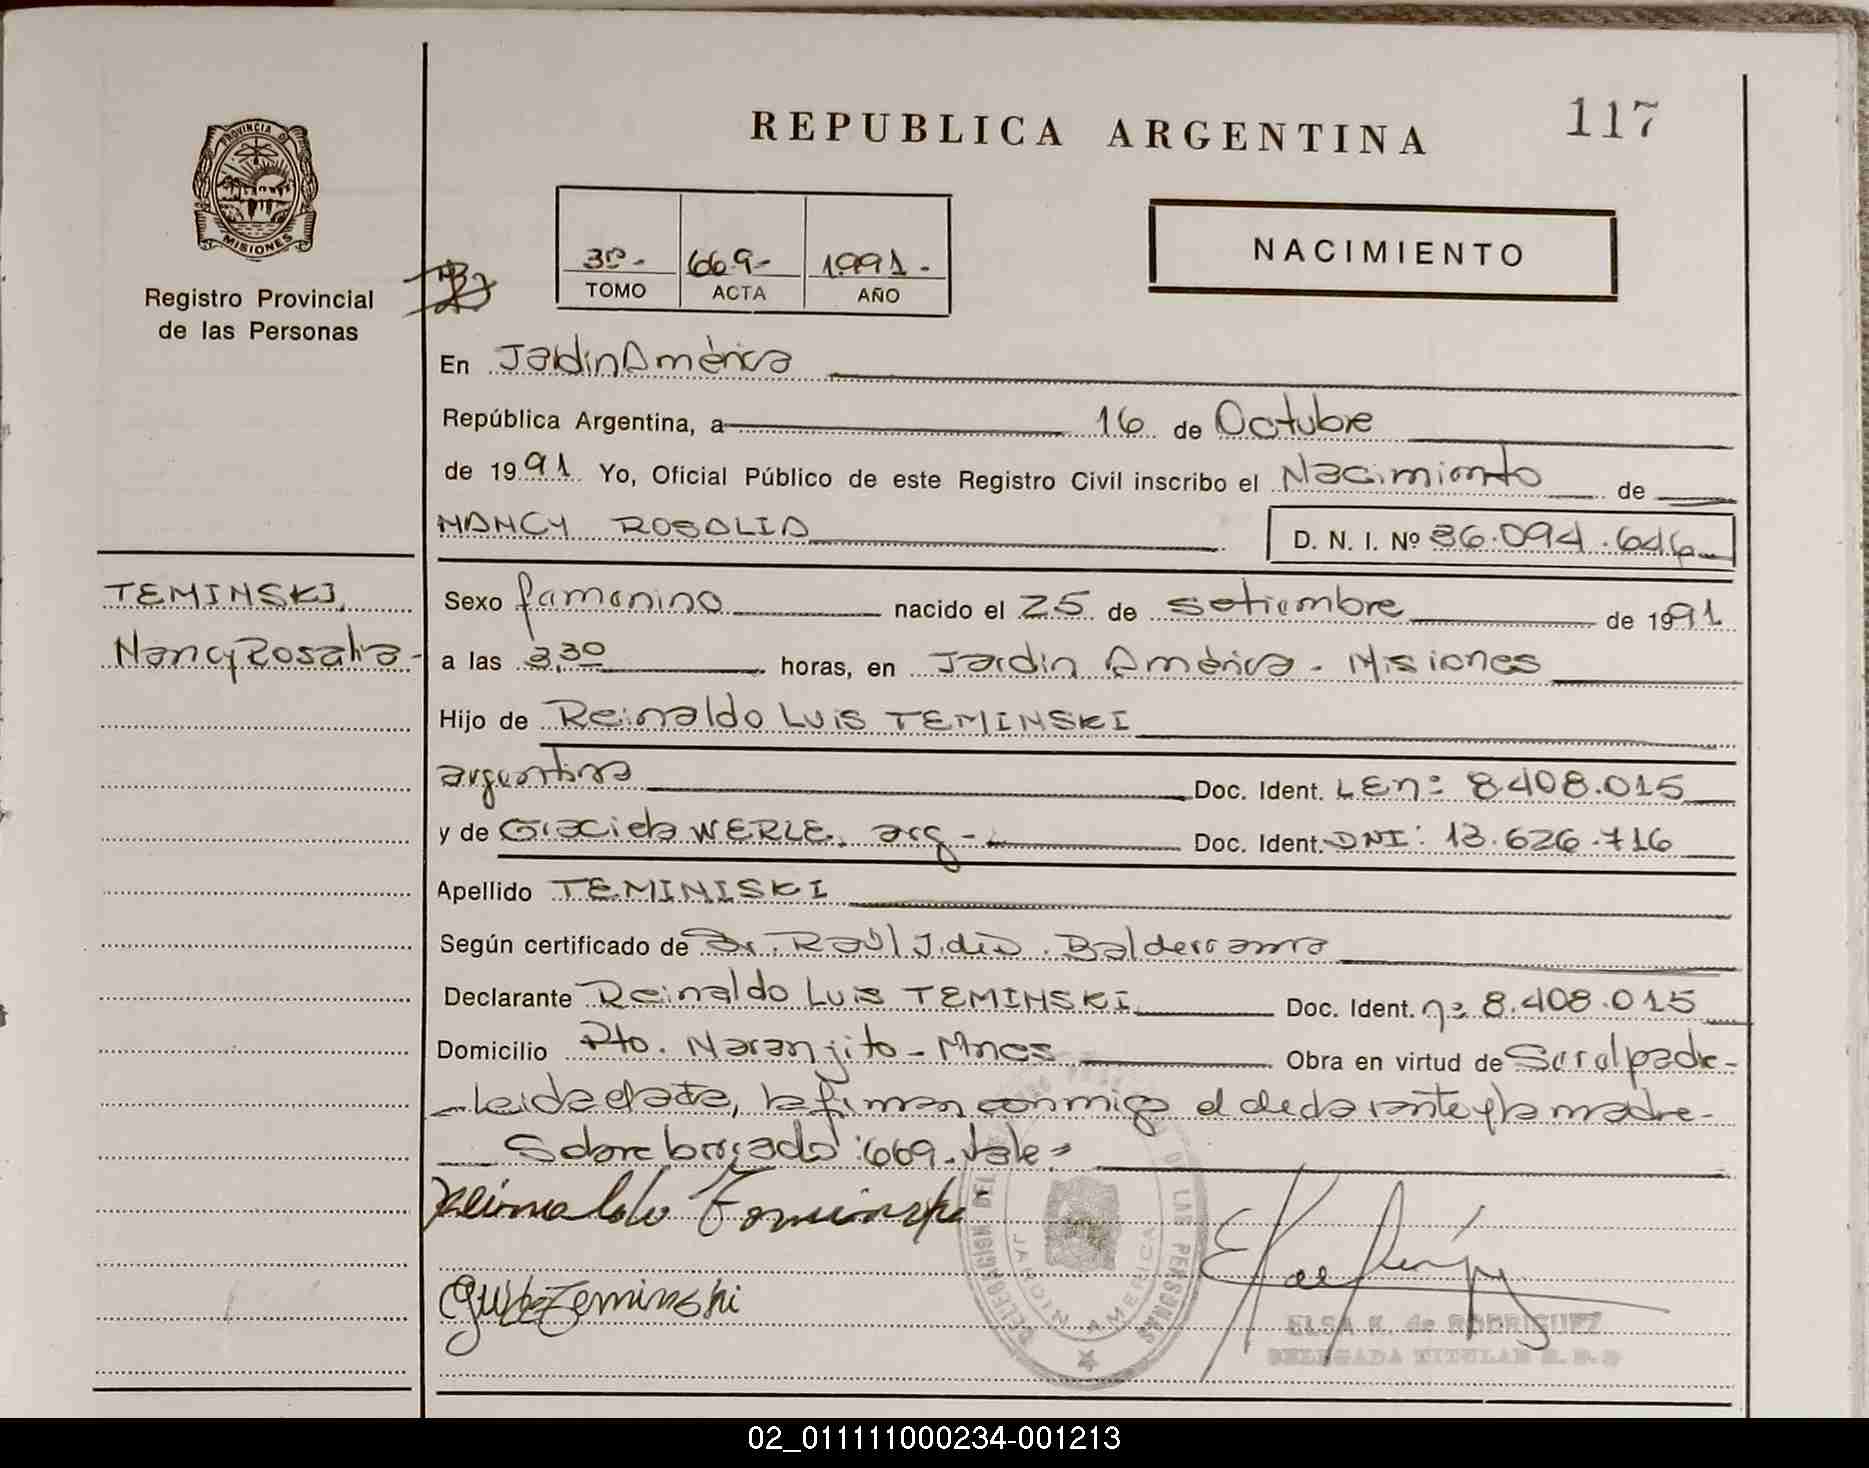 117
REPUBLICA ARGENTINA
PROVINCIA DE
MISIONES
Registro Provincial
de las Personas
3º- 669- 1991.-
TOMO ACTA AÑO
NACIMIENTO
En Jardin América
República Argentina, a 16 de Octubre
de 1991 Yo, Oficial Público de este Registro Civil inscribo el Nacimiento de
NANCY ROSALIA D. N. I. Nº 36.094.646
TEMINSKI,
Nancy Rosalia-
Sexo femenino nacido el 25 de setiembre de 1991
a las 3,30 horas, en Jardin América - Misiones
Hijo de Reinaldo Luis TEMINSKI
argentino Doc. Ident. LEnº 8.408.015
y de Graciela WERLE, arg- Doc. Ident. DNI: 13.626.716
Apellido TEMINISKI
Según certificado de Dr. Raúl J. Balderrama
Declarante Reinaldo Luis TEMINSKI Doc. Ident. nº 8.408.015
Domicilio Pto. Naranjito - Mnes Obra en virtud de Ser el padre-
-Leida el acta, la firman conmigo el declarante y la madre-
Sobre borrado: 669. Vale=
Reinaldo Teminski
Teminski
DELEGACION DEL REGISTRO PROVINCIAL DE LAS PERSONAS
JARDIN AMERICA
ELSA K. de RODRIGUEZ
DELEGADA TITULAR R. P. P
02_011111000234-001213